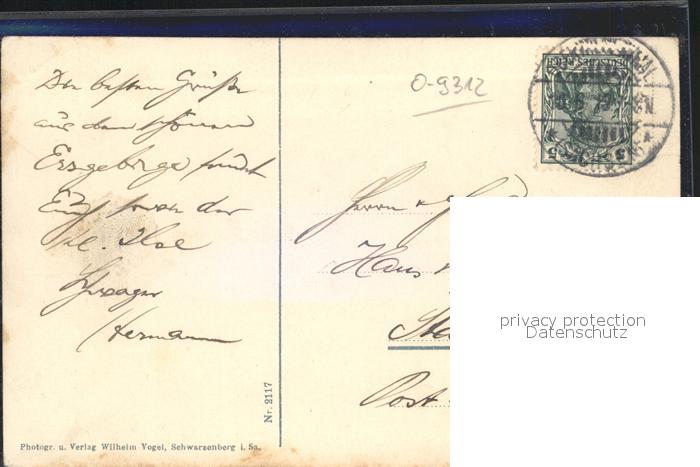 Die besten Grüße
aus dem schönen
Erzgebirge sendet
Euch sowie der
kl. Ilse
Schwager
Hermann
O-9312
DEUTSCHES REICH
5 5
Herrn u.
Haus
Post
Nr. 2117
Photogr. u. Verlag Wilhelm Vogel, Schwarzenberg i. Sa.
privacy protection
Datenschutz